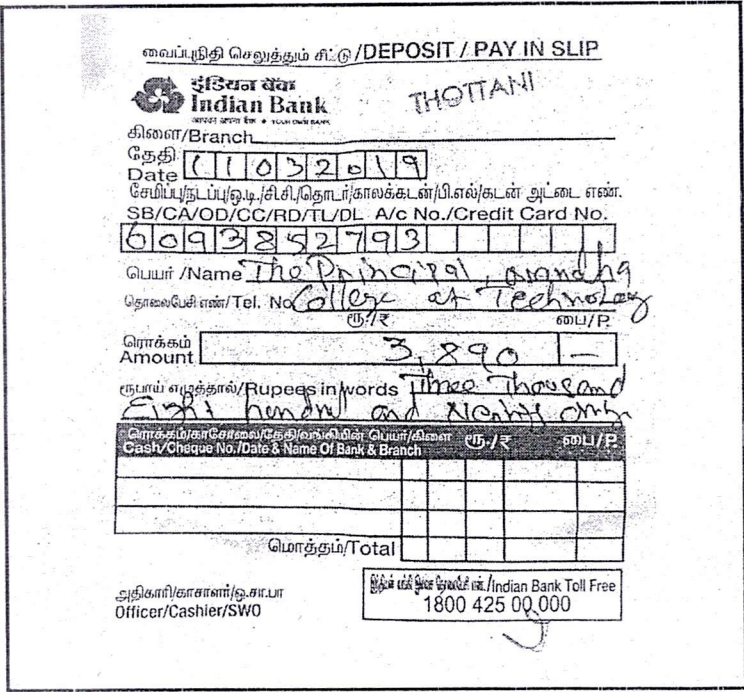 வைப்புநிதி செலுத்தும் சீட்டு/DEPOSIT / PAY IN SLIP
इंडियन बैंक
Indian Bank
आपका अपना बैंक • YOUR OWN BANK
THOTTANI
கிளை/Branch
தேதி
Date 11032019
சேமிப்பு/நடப்பு/ஒ.டி./சி.சி./தொடர்/காலக்கடன்/பி.எல்/கடன் அட்டை எண்.
SB/CA/OD/CC/RD/TL/DL A/c No./Credit Card No.
6093852793
பெயர் /Name The Principal, Anandha
தொலைபேசி எண்/Tel. No College of Technology
ரூ./₹ பை/P.
ரொக்கம்
Amount 3,890 —
ரூபாய் எழுத்தால்/Rupees in words Three Thousand
Eight hundred and Ninety only
ரொக்கம்/காசோலை/தேதி/வங்கியின் பெயர்/கிளை ரூ./₹ பை/P.
Cash/Cheque No./Date & Name Of Bank & Branch
மொத்தம்/Total
அதிகாரி/காசாளர்/ஒ.சா.பா
Officer/Cashier/SWO
/Indian Bank Toll Free
1800 425 00 000